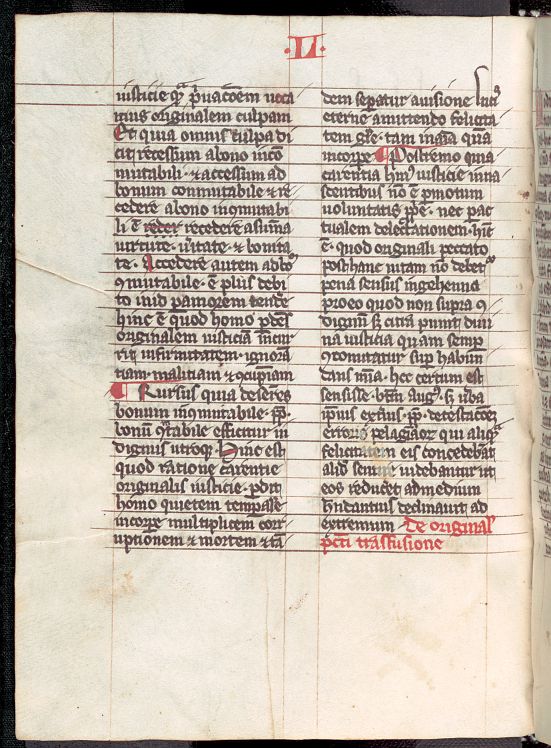 ·LI·
iusticie qr̄ p̄uacōem uoca
mus originalem culpam
Et quia omnis culpa di
cit recessum abono incō
mutabili · ⁊ accessum ad
bonum conmutabile ⁊ re
cedere abono inqmutabi
li ē reder recedere asūma
uirtute · ūitate · ⁊ bonita
te · Accedere autem adbo
qmutabile · ē plus debi
to illud p amorem tende
hinc ē quod homo pdēs
originalem iusticiā incur
rit infirmitatem · ignorā
tiam · malitiam ⁊ ɔcupiam
¶ Rursus quia deserēs
bonum inqmutabile · pp̄
bonū qtabile efficitur in
dignus utroqȝ hinc est
quod ratione carentie
originalis iusticie · pdit
homo quietem tempalē
incorpe multiplicem corr
uptionem ⁊ mortem ⁊ tā
dem sepatur auisione luc
eterne amittendo felicita
tem glē · tam inaīa quā
incorpe ¶ Postremo quia
carentia hꝰ iusticie inna
scentibus nō ē p motum
uoluntatis ppe · nec p ac
tualem delectationem · hīc
ē · quod originali peccato
post hanc uitam nō debet
pena sensus ingehenna
proeo quod non supra q
dignū sȝ citra punit diui
na iusticia quam semp
qcomitatur sup habun
dans mīa · hec certum est
sensisse · btm̄ augꝰ · sȝ uba
ipsius extius · pp̄ · detestacōeȝ
erroris pelagiaoȝ qui aliqȝ
felicitatem eis concedebāt
aliđ sentire uidebantur ut
eos reducet admedium
habundantius declinauit ad
extremum De original
pcti trassfusione